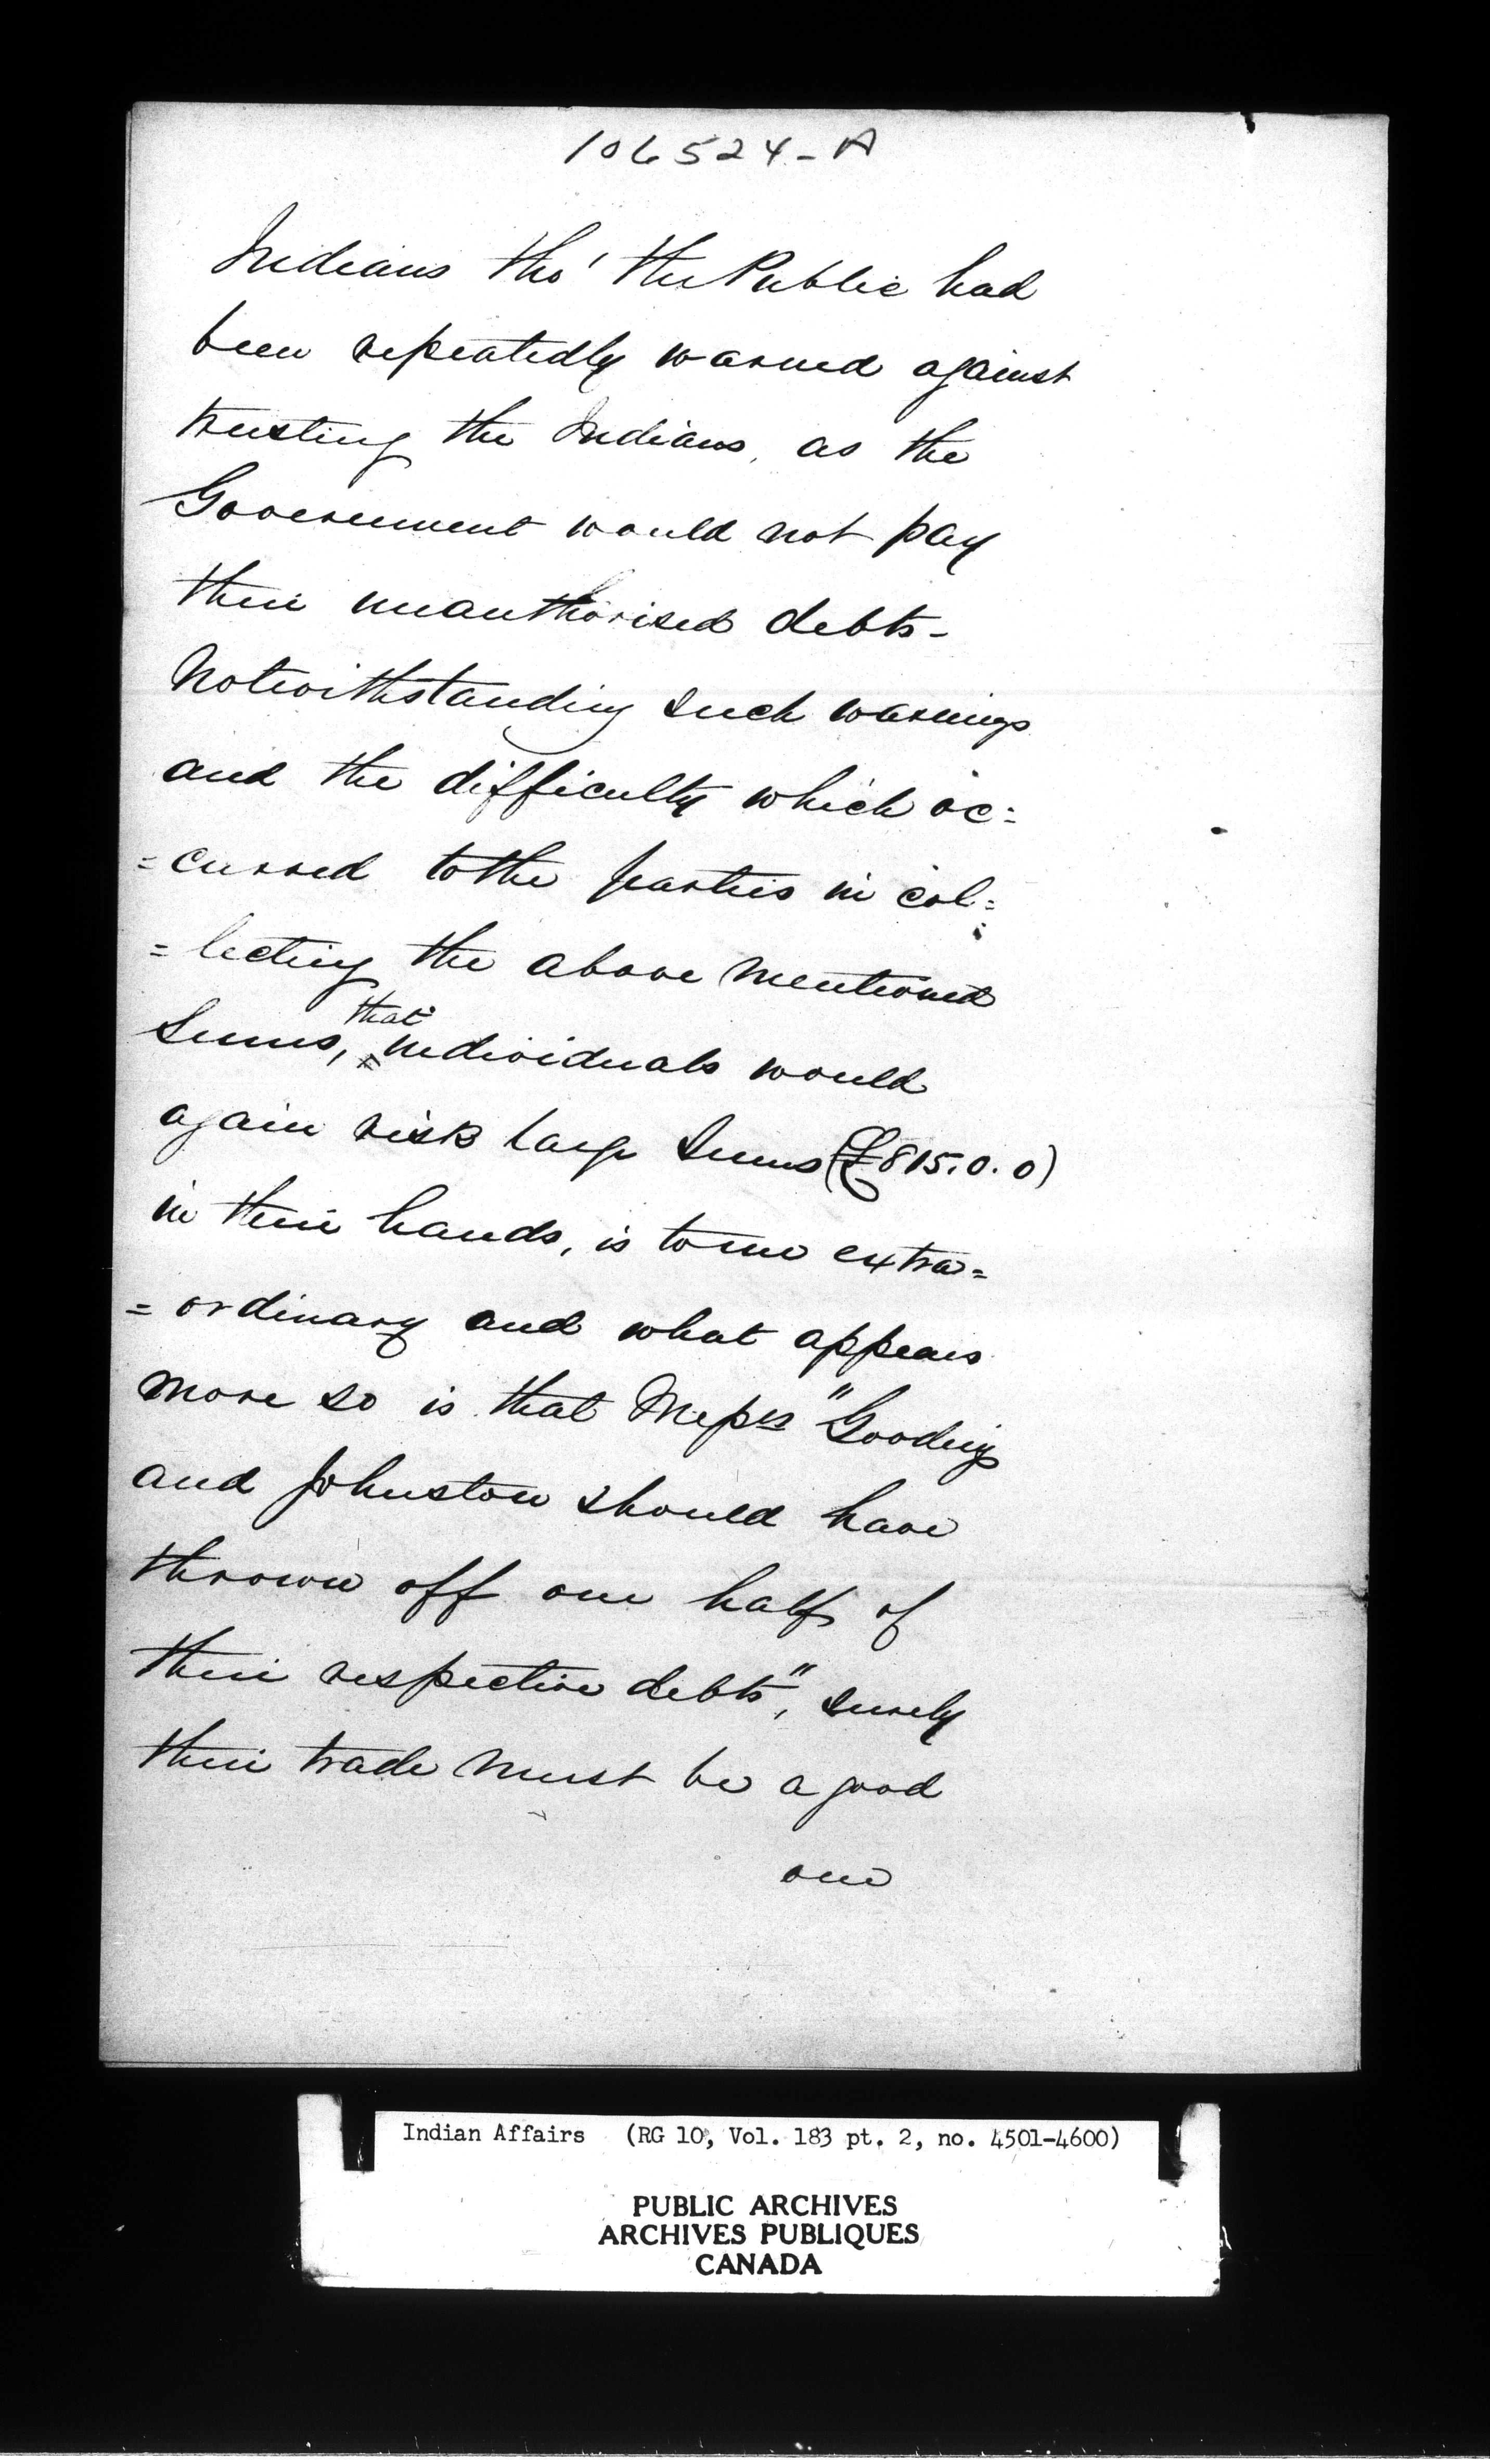 106524-A
Indians tho' the Public had
been repeatedly warned against
trusting the Indians, as the
Government would not pay
their unauthorised debts-
Notwithstanding such warnings
and the difficulty which oc=
=curred to the parties in col=
=lecting the above mentioned
that
Sums, ^ individuals would
again risk large Sums (£815.0.0)
in their hands, is to me extra=
=ordinary and what appears
more so is that Messrs "Gooding
and Johnston should have
thrown off one half of
their respective debts", surely
their trade must be a good
one
Indian Affairs (RG 10, Vol. 183 pt. 2, no. 4501-4600)
PUBLIC ARCHIVES
ARCHIVES PUBLIQUES
CANADA